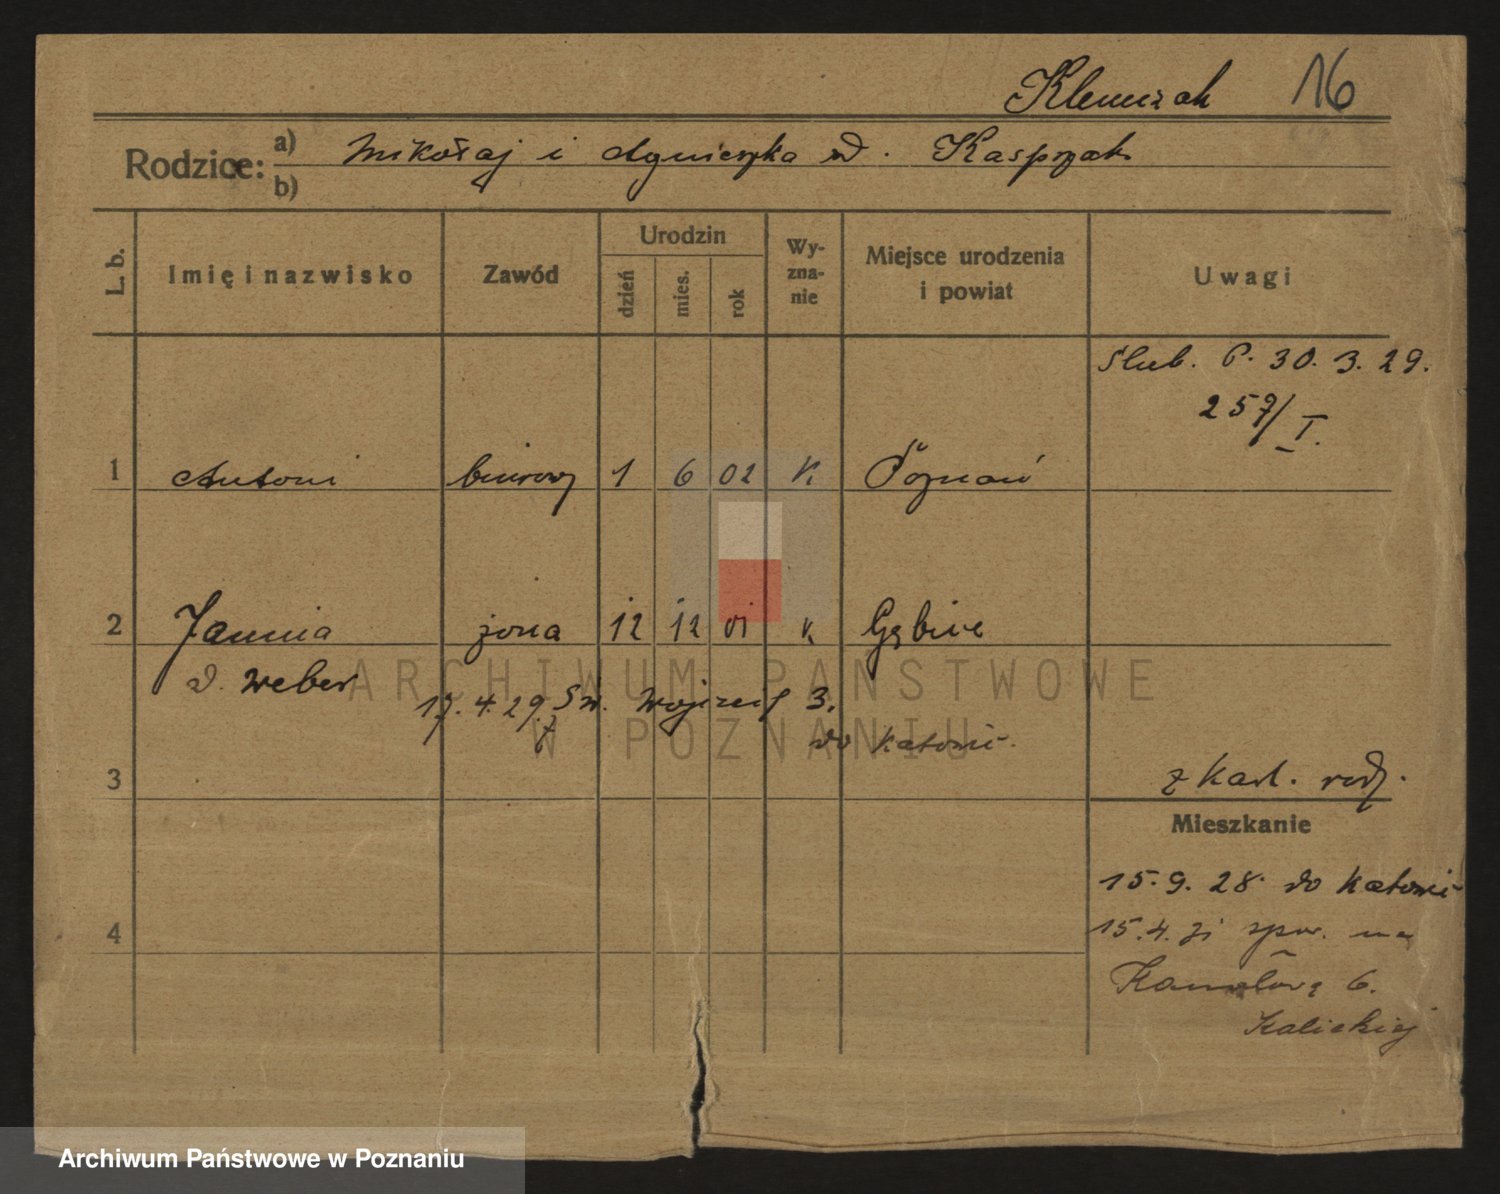 Klemczak 16
Rodzice: a) Mikołaj i Agnieszka d. Kaspszak
b)
L. b. Imię i nazwisko Zawód Urodzin dzień mies. rok Wy-zna-nie Miejsce urodzenia i powiat Uwagi
Slub. P. 30. 3. 29.
257/I.
1 Antoni biurowy 1 6 02 K Poznań
2 Janina żona 12 12 01 K Gębice
d. Weber
17. 4. 29. Św. Wojciech 3.
do Katowic.
3 z kart. rodz.
Mieszkanie
15. 9. 28. do Katowic
4 15. 4. 31 spow. na
6.
Kaliskiej
ARCHIWUM PAŃSTWOWE
W POZNANIU
Archiwum Państwowe w Poznaniu